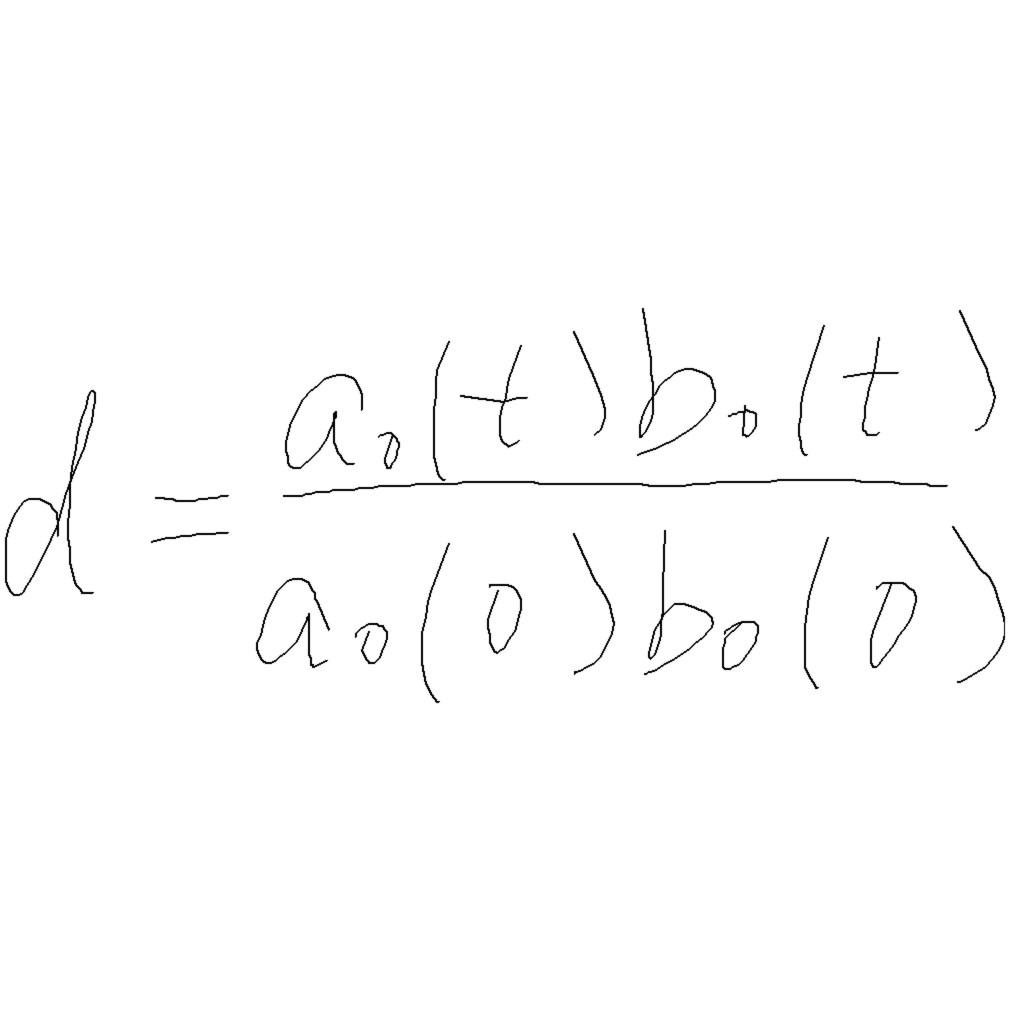 d = \frac{a_0(t)b_0(t)}{a_0(0)b_0(0)}